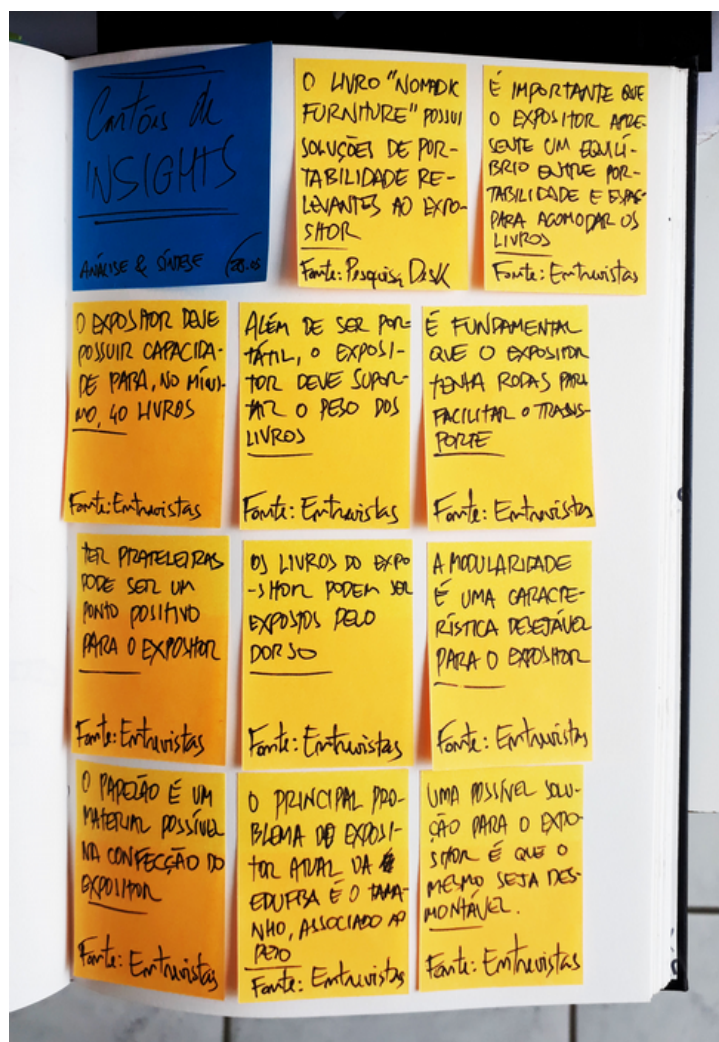 Cartões de
INSIGHTS
ANÁLISE & SÍNTESE
O LIVRO "NOMADIC
FURNITURE" POSSUI
SOLUÇÕES DE POR-
TABILIDADE RE-
LEVANTES AO EXPO-
SITOR
Fonte: Pesquisa Desk
É IMPORTANTE QUE
O EXPOSITOR APRE-
SENTE UM EQUILÍ-
BRIO ENTRE POR-
TABILIDADE E ESPAÇO
PARA ACOMODAR OS
LIVROS
Fonte: Entrevistas
O EXPOSITOR DEVE
POSSUIR CAPACIDA-
DE PARA, NO MÍNI-
MO, 40 LIVROS
Fonte: Entrevistas
ALÉM DE SER POR-
TÁTIL, O EXPOSI-
TOR DEVE SUPOR-
TAR O PESO DOS
LIVROS
Fonte: Entrevistas
É FUNDAMENTAL
QUE O EXPOSITOR
TENHA RODAS PARA
FACILITAR O TRANS-
PORTE
Fonte: Entrevistas
TER PRATELEIRAS
PODE SER UM
PONTO POSITIVO
PARA O EXPOSITOR
Fonte: Entrevistas
OS LIVROS DO EXPO
-SITOR PODEM SER
EXPOSTOS PELO
DORSO
Fonte: Entrevistas
A MODULARIDADE
É UMA CARACTE-
RÍSTICA DESEJÁVEL
PARA O EXPOSITOR
Fonte: Entrevistas
O PAPELÃO É UM
MATERIAL POSSÍVEL
NA CONFECÇÃO DO
EXPOSITOR
Fonte: Entrevistas
O PRINCIPAL PRO-
BLEMA DO EXPOSI-
TOR ATUAL DA
EDUFBA É O TAMA-
NHO, ASSOCIADO AO
PESO
Fonte: Entrevistas
UMA POSSÍVEL SOLU-
ÇÃO PARA O EXPO-
SITOR É QUE O
MESMO SEJA DES-
MONTÁVEL.
Fonte: Entrevistas